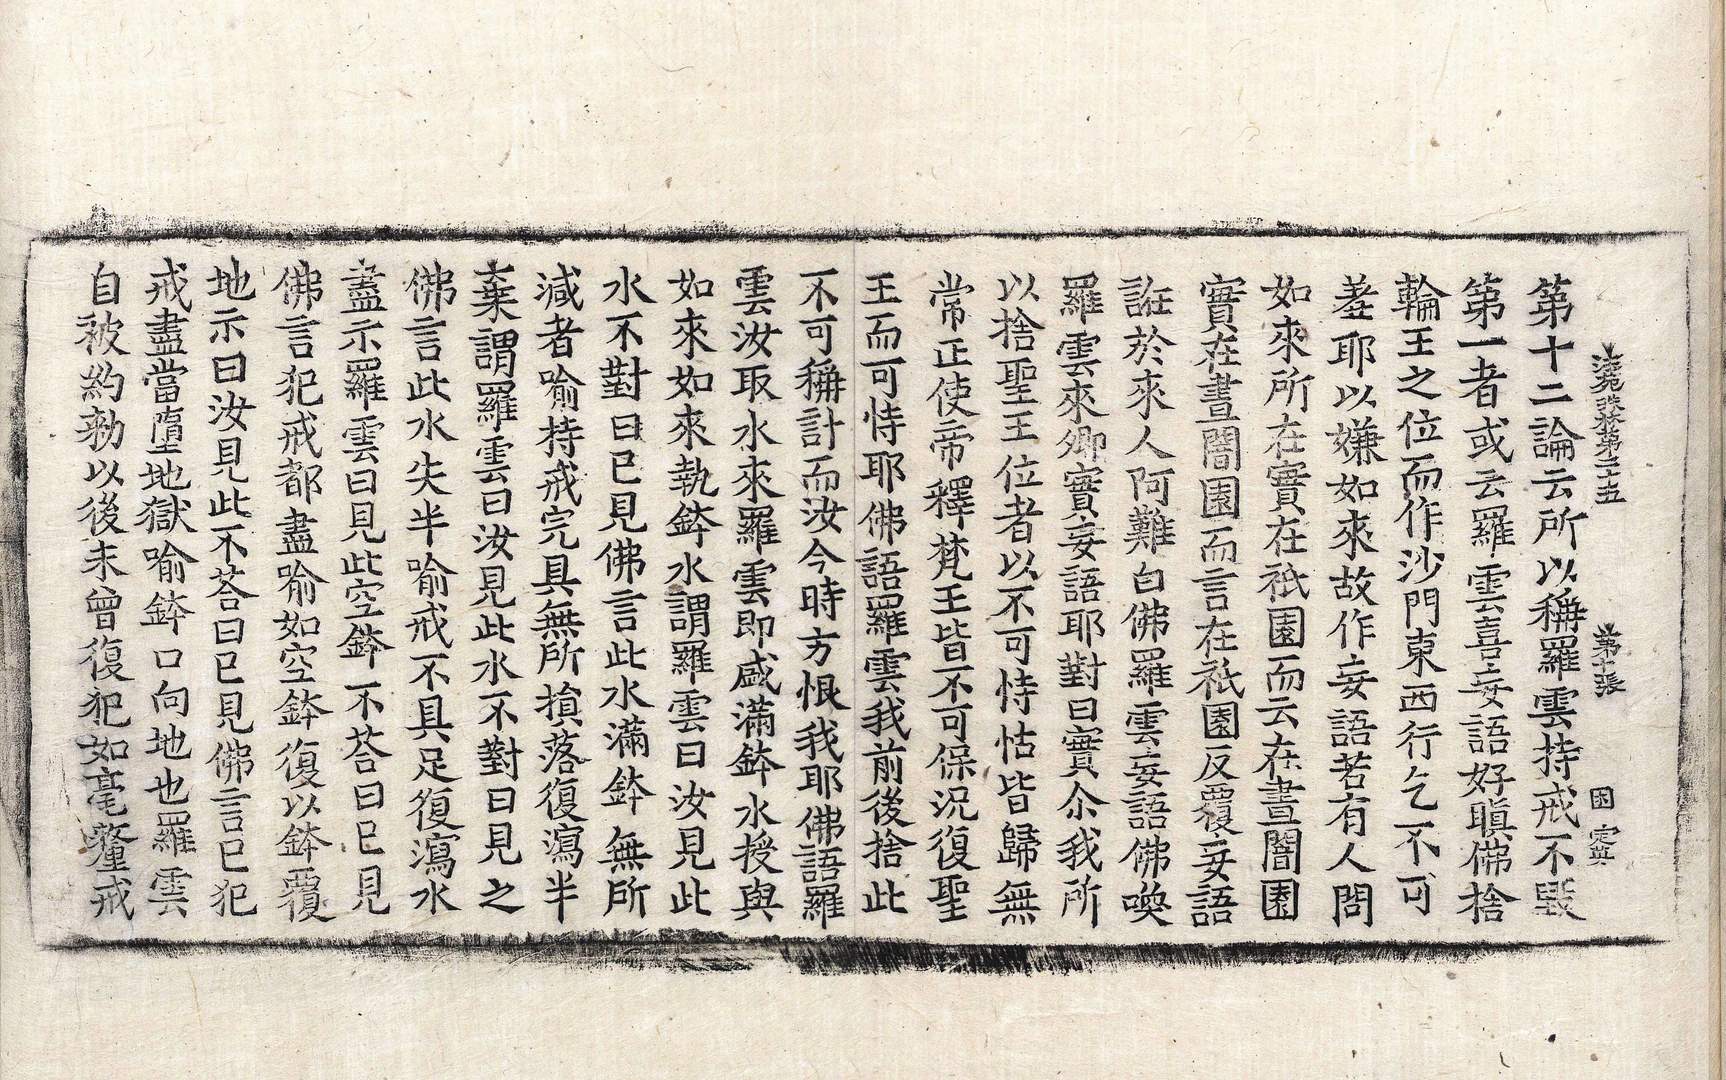 法苑珠林第二十五　第十張　囷　定英
第十二論云所以稱羅雲持戒不毀
第一者或云羅雲喜妄語好瞋佛捨
輪王之位而作沙門東西行乞不可
羞耶以嫌如來故作妄語若有人問
如來所在實在祇園而云在晝闇園
實在晝闇園而言在祇園反覆妄語
誑於來人阿難白佛羅雲妄語佛喚
羅雲來卿實妄語耶對曰實尒我所
以捨聖王位者以不可恃怙皆歸無
常正使帝釋梵王皆不可保況復聖
王而可恃耶佛語羅雲我前後捨此
不可稱計而汝今時方恨我耶佛語羅
雲汝取水來羅雲即盛滿鉢水授與
如來如來執鉢水謂羅雲曰汝見此
水不對曰已見佛言此水滿鉢無所
減者喻持戒完具無所損落復瀉半
棄謂羅雲曰汝見此水不對曰見之
佛言此水失半喻戒不具足復瀉水
盡示羅雲曰見此空鉢不荅曰已見
佛言犯戒都盡喻如空鉢復以鉢覆
地示曰汝見此不荅曰已見佛言已犯
戒盡當墮地獄喻鉢口向地也羅雲
自被約勑以後未曾復犯如毫氂戒